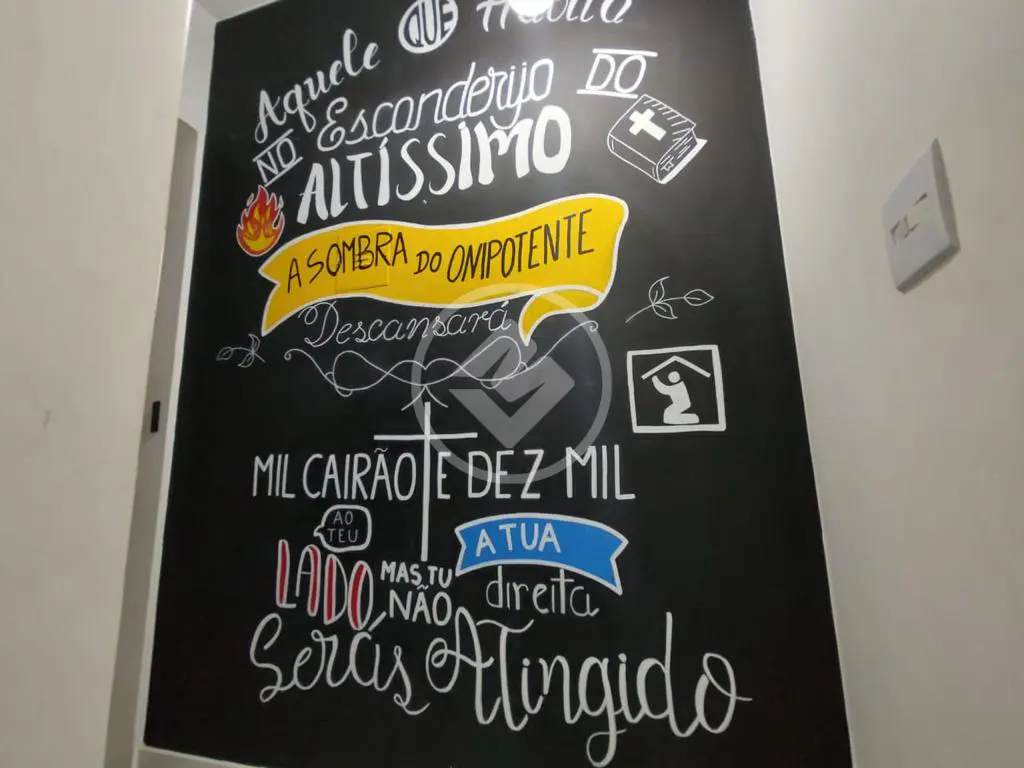 Aquele QUE Habita
NO Esconderijo DO
ALTÍSSIMO
A SOMBRA DO ONIPOTENTE
Descansará
MIL CAIRÃO E DEZ MIL
AO TEU
LADO
A TUA
direita
MAS TU
NÃO
Serás Atingido